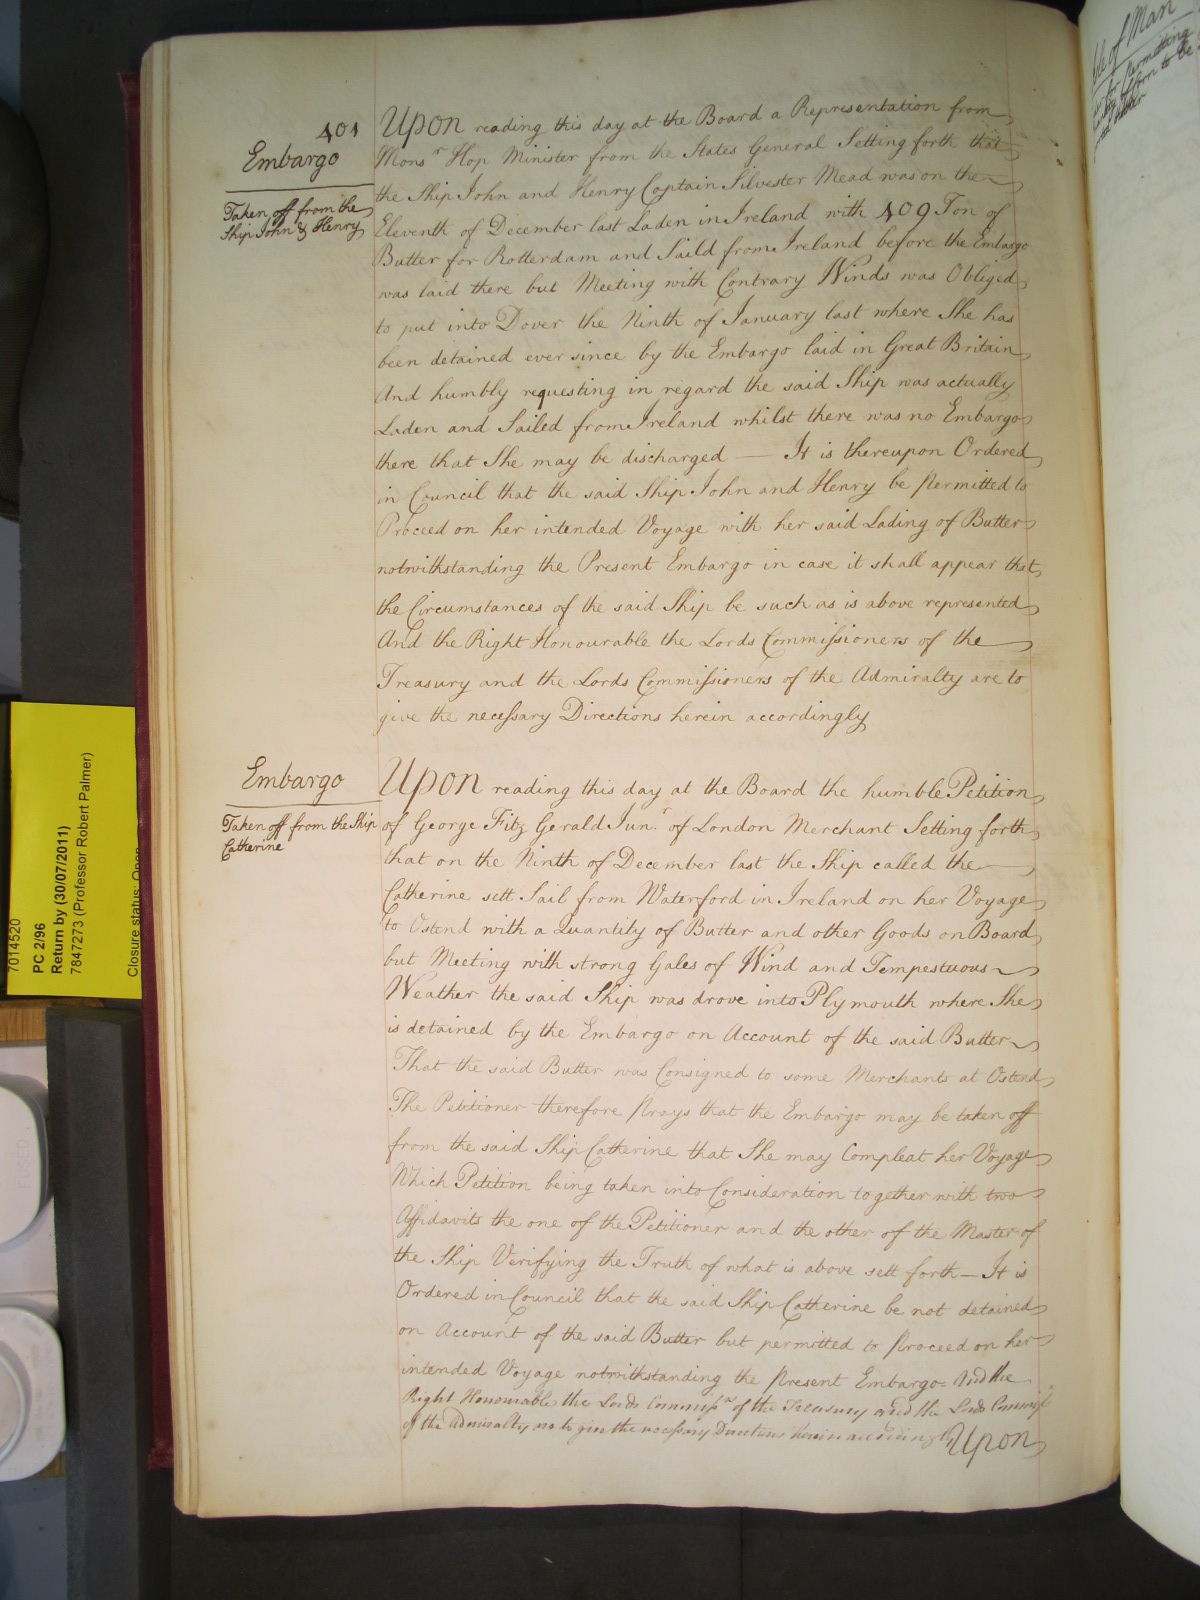 401
Embargo
Taken off from the
Ship John & Henry
Upon reading this day at the Board a Representation from
Monsr Hop Minister from the States General Setting forth that
the Ship John and Henry Captain Silvester Mead was on the
Eleventh of December last Laden in Ireland with 409 Ton of
Butter for Rotterdam and Saild from Ireland before the Embargo
was laid there but Meeting with Contrary Winds was Obliged
to put into Dover the Ninth of January last where She has
been detained ever since by the Embargo laid in Great Britain
And humbly requesting in regard the said Ship was actually
Laden and Sailed from Ireland whilst there was no Embargo
there that She may be discharged — It is thereupon Ordered
in Council that the said Ship John and Henry be Permitted to
Proceed on her intended Voyage with her said Lading of Butter
notwithstanding the Present Embargo in case it shall appear that
the Circumstances of the said Ship be such as is above represented
And the Right Honourable the Lords Commissioners of the
Treasury and the Lords Commissioners of the Admiralty are to
give the necessary Directions herein accordingly
Embargo
Taken off from the Ship
Catherine
Upon reading this day at the Board the humble Petition
of George Fitz Gerald Junr. of London Merchant Setting forth
that on the Ninth of December last the Ship called the
Catherine sett Sail from Waterford in Ireland on her Voyage
to Ostend with a Quantity of Butter and other Goods on Board
but Meeting with strong Gales of Wind and Tempestuous
Weather the said Ship was drove into Plymouth where She
is detained by the Embargo on Account of the said Butter
That the said Butter was Consigned to some Merchants at Ostend
The Petitioner therefore Prays that the Embargo may be taken off
from the said Ship Catherine that She may Compleat her Voyage
Which Petition being taken into Consideration together with two
Affidavits the one of the Petitioner and the other of the Master of
the Ship Verifying the Truth of what is above sett forth — It is
Ordered in Council that the said Ship Catherine be not detained
on Account of the said Butter but permitted to Proceed on her
intended Voyage notwithstanding the Present Embargo = And the
Right Honourable the Lords Commissrs of the Treasury and the Lords Commiss
of the Admiralty are to give the necessary Directions herein accordingly
Upon
7014520
PC 2/96
Return by (30/07/2011)
7847273 (Professor Robert Palmer)
Closure status: Open
of Man
for permitting
Corn to be